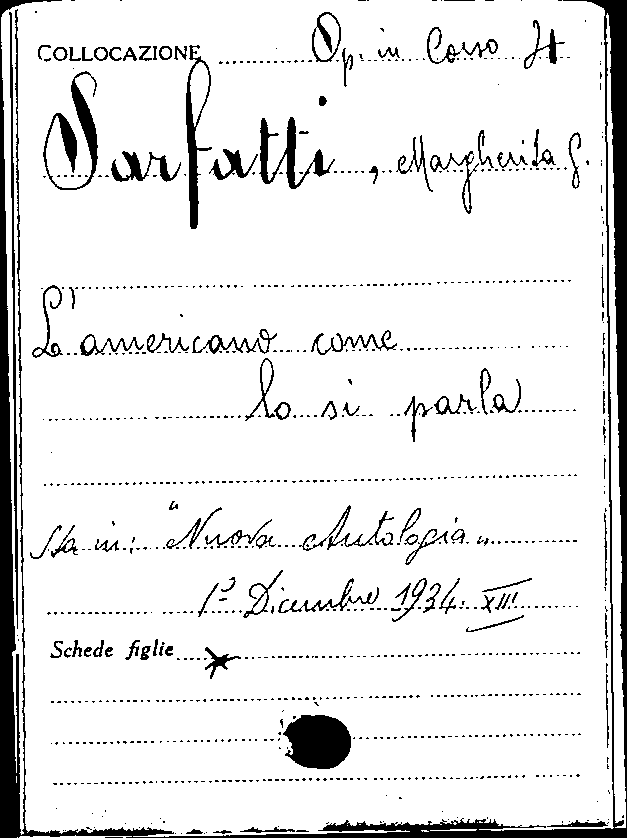 COLLOCAZIONE Op. in Corso It
Sarfatti, Margherita G.
L'americano come
lo si parla
Sta in: "Nuova Antologia"
1º Dicembre 1934. XIII
Schede figlie